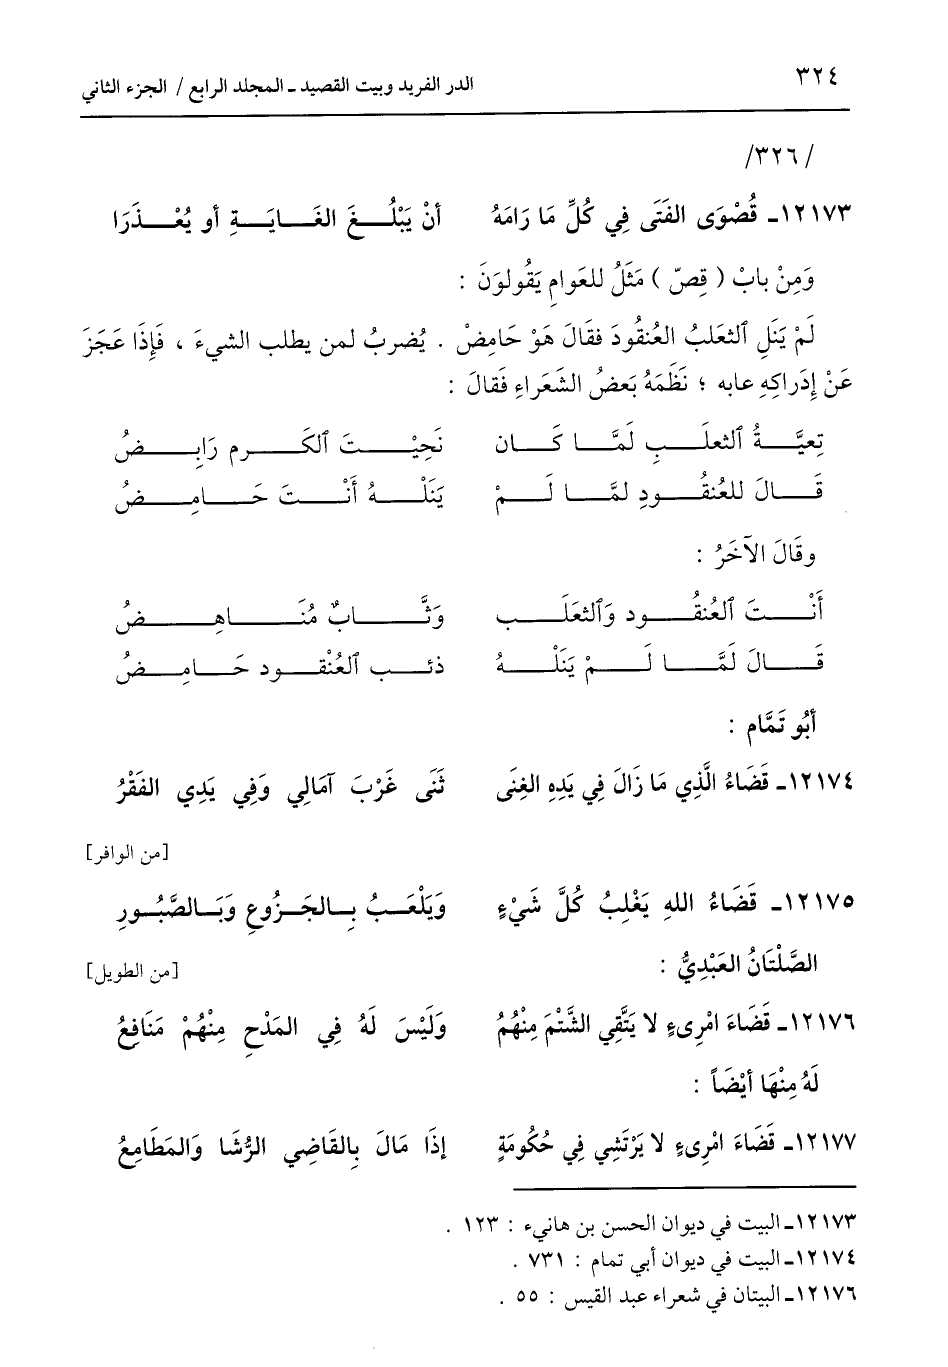 ٣٢٤
الدر الفريد وبيت القصيد ـ المجلد الرابع / الجزء الثاني
/ ٣٢٦/
١٢١٧٣ـ قُصْوَى الفَتَى فِي كُلِّ مَا رَامَهُ أنْ يَبْلُـــغَ الغَـــايَـــةِ أو يُعْـــذَرَا
وَمِنْ بابْ ( قِصّ ) مَثَلُ للعَوامِ يَقُولوَنَ :
لَمْ يَنَلِ ٱلثعَلبُ العُنقُودَ فقَالَ هَوْ حَامِضْ . يُضربُ لمن يطلب الشيءَ ، فَإِذَا عَجَزَ
عَنْ إِدَراكِهِ عابه ؛ نَظَمَهُ بَعضُ الشَعَراءِ فَقالَ :
تِعيَّـــةُ ٱلثعلَـــبِ لَمَّـــا كَـــان نَجِيْـــتَ ٱلكَـــرم رَابِـــضُ
قَـــالَ للعُنقُـــودِ لمَّـــا لَـــمْ يَنَلْـــهُ أَنْـــتَ حَـــامِـــضُ
وقَالَ الآخَرُ :
أَنْـــتَ ٱلعُنقُـــود وَٱلثعَلَـــب وَثَّـــابٌ مُنَـــاهِـــضُ
قَـــالَ لَمَّـــا لَـــمْ يَنَلْـــهُ ذئـــب ٱلعُنْقـــود حَـــامِـــضُ
أبُو تَمَّام :
١٢١٧٤ـ قَضَاءُ الَّذِي مَا زَالَ فِي يَدِهِ الغِنَى ثَنَى غَرْبَ آمَالِي وَفِي يَدِي الفَقْرُ
[من الوافر]
١٢١٧٥ـ قَضَاءُ اللهِ يَغْلِبُ كُلَّ شَيْءٍ وَيَلْعَـــبُ بِـــالجَـــزُوعِ وَبَـــالصَّبُـــورِ
الصَّلْتَانُ العَبْدِيُّ : [من الطويل]
١٢١٧٦ـ قَضَاءَ امْرِىءٍ لا يَتَّقِي الشَّتْمَ مِنْهُمُ وَلَيْسَ لَهُ فِي المَدْحِ مِنْهُمْ مَنَافِعُ
لَهُ مِنْهَا أيْضَاً :
١٢١٧٧ـ قَضَاءَ امْرِىءٍ لا يَرْتَشِي فِي حُكُومَةٍ إذَا مَالَ بِالقَاضِي الرُّشَا وَالمَطَامِعُ
١٢١٧٣ـ البيت في ديوان الحسن بن هانيء : ١٢٣ .
١٢١٧٤ـ البيت في ديوان أبي تمام : ٧٣١ .
١٢١٧٦ـ البيتان في شعراء عبد القيس : ٥٥ .